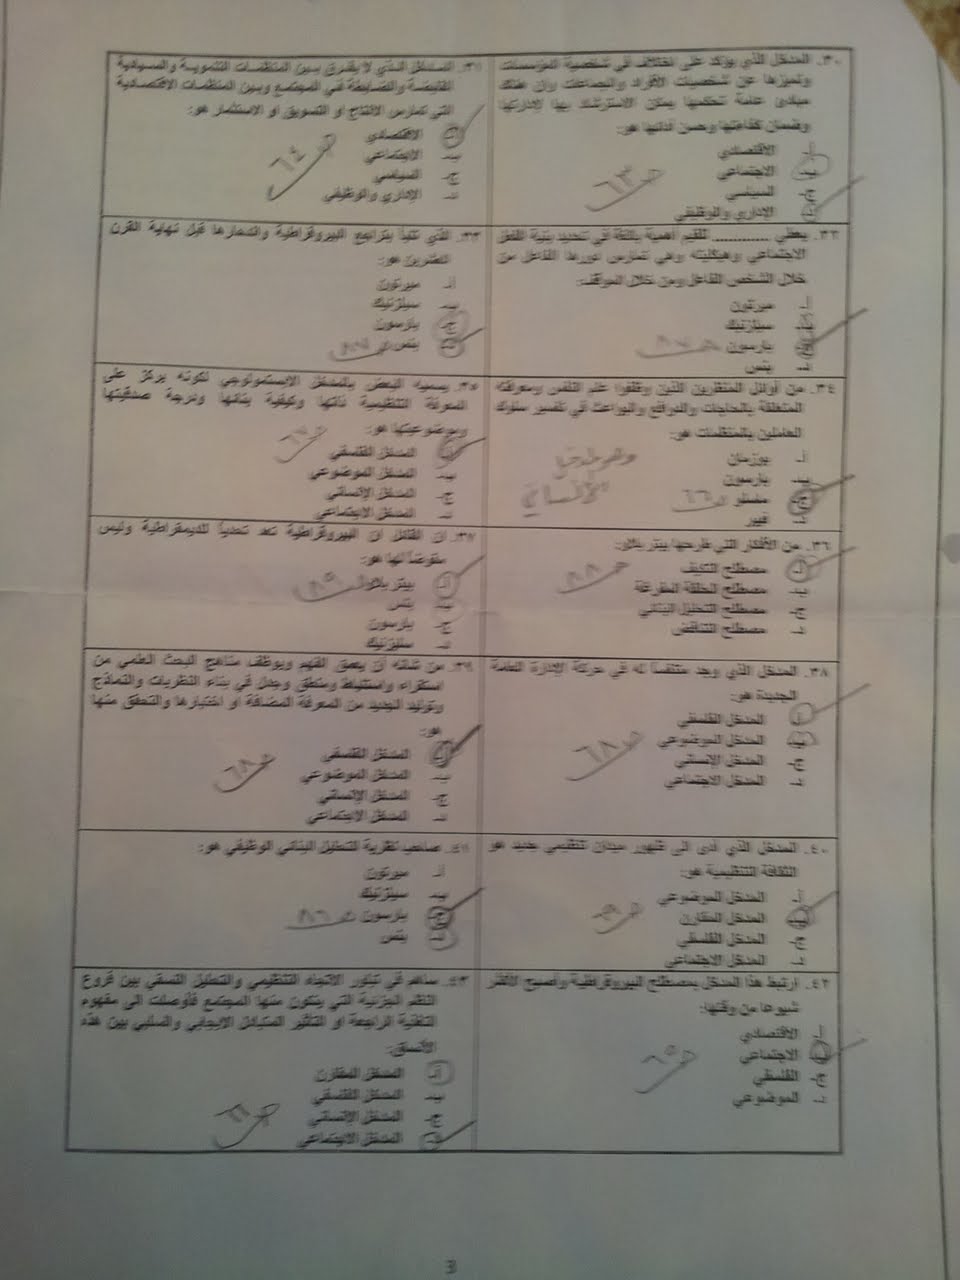 ٣٠. المدخل الذي يؤكد على اختلاف في شخصية المؤسسات
وتميزها عن شخصيات الأفراد والجماعات وان هناك
مبادئ عامة تحكمها يمكن الاسترشاد بها لإدارتها
وضمان كفاءتها وحسن أدائها هو:
أ- الاقتصادي
ب- الاجتماعي
ج- السياسي
د- الإداري والوظيفي
ص ٦٣
٣١. المدخل الذي لا يفرق بين المنظمات التنموية والسيادية
القابضة والضابطة في المجتمع وبين المنظمات الاقتصادية
التي تمارس الانتاج أو التسويق او الاستثمار هو:
أ- الاقتصادي
ب- الاجتماعي
ج- السياسي
د- الإداري والوظيفي
ص ٦٤
٣٢. يعطي ............ للقيم أهمية بالغة في تحديد بنية الفعل
الاجتماعي وهيكليته وهي تمارس دورها الفاعل من
خلال الشخص الفاعل ومن خلال الموقف:
أ- ميرتون
ب- سيلزنيك
ج- بارسون ص ٨٧
د- بنس
٣٣. الذي تنبأ بتراجع البيروقراطية واندحارها قبل نهاية القرن
العشرين هو:
أ- ميرتون
ب- سيلزنيك
ج- بارسون
د- بنس ص ٨٧
٣٤. من أوائل المنظرين الذين وظفوا علم النفس ومعرفته
المتعلقة بالحاجات والدوافع والبواعث في تفسير سلوك
العاملين بالمنظمات هو:
أ- بوزمان
ب- بارسون
ج- مسلو ص ٦٦
د- فيبر
الإنساني
٣٥. يسميه البعض بالمدخل الابستمولوجي لكونه يركز على
المعرفة التنظيمية ذاتها وكيفية بنائها ودرجة صدقيتها
وموضوعيتها هو:
أ- المدخل الفلسفي
ب- المدخل الموضوعي
ج- المدخل الإنساني
د- المدخل الاجتماعي
٣٦. من الأفكار التي طرحها بيتر بلاو:
أ- مصطلح التكيف
ب- مصطلح الحلقة المفرغة
ج- مصطلح التحليل البنائي
د- مصطلح التناقض
ص ٨٨
٣٧. ان القائل ان البيروقراطية تعد تحدياً للديمقراطية وليس
مقوضاً لها هو:
أ- بيتر بلاو ص ٨٩
ب- بنس
ج- بارسون
د- سيلزنيك
٣٨. المدخل الذي وجد متنفساً له في حركة الإدارة العامة
الجديدة هو:
أ- المدخل الفلسفي
ب- المدخل الموضوعي
ج- المدخل الإنساني
د- المدخل الاجتماعي
ص ٦٨
٣٩. من شأنه أن يعمق الفهم ويوظف مناهج البحث العلمي من
استقراء واستنباط ومنطق وجدل في بناء النظريات والنماذج
وتوليد الجديد من المعرفة المضافة أو اختبارها والتحقق منها
هو:
أ- المدخل الفلسفي
ب- المدخل الموضوعي
ج- المدخل الإنساني
د- المدخل الاجتماعي
ص ٦٨
٤٠. المدخل الذي أدى الى ظهور ميدان تنظيمي جديد هو
الثقافة التنظيمية هو:
أ- المدخل الموضوعي
ب- المدخل المقارن
ج- المدخل الفلسفي
د- المدخل الاجتماعي
٤١. صاحب نظرية التحليل البنائي الوظيفي هو:
أ- ميرتون
ب- سيلزنيك
ج- بارسون ص ٨٦
د- بنس
٤٢. ارتبط هذا المدخل بمصطلح البيروقراطية وأصبح الأكثر
شيوعا من وقتها:
أ- الاقتصادي
ب- الاجتماعي
ج- الفلسفي
د- الموضوعي
ص ٦٥
٤٣. ساهم في تبلور الاتجاه التنظيمي والتحليل النسقي بين فروع
النظم الجزئية التي يتكون منها المجتمع فأوصلت الى مفهوم
التغذية الراجعة أو التأثير المتبادل الايجابي والسلبي بين هذه
الأنساق:
أ- المدخل المقارن
ب- المدخل الفلسفي
ج- المدخل الإنساني
د- المدخل الاجتماعي
3